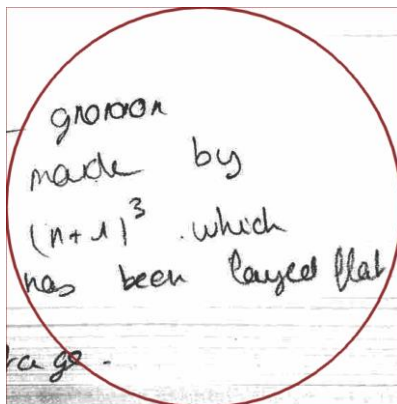 gnomon
made by
(n+1)³ which
has been layed flat